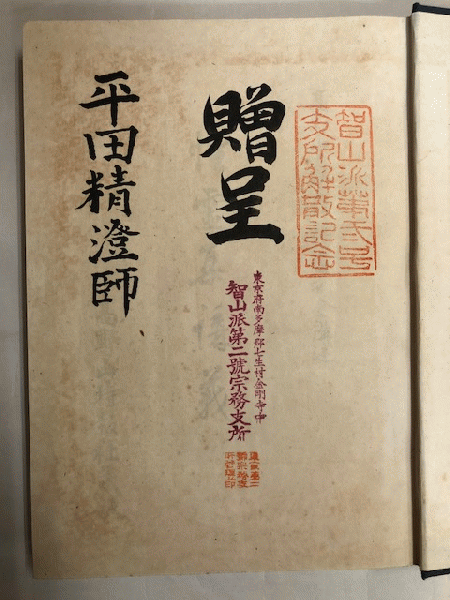 智山派第弐号
支所解散記念
贈呈
東京府南多摩郡七生村金剛寺中
智山派第二號宗務支所
平田精澄師